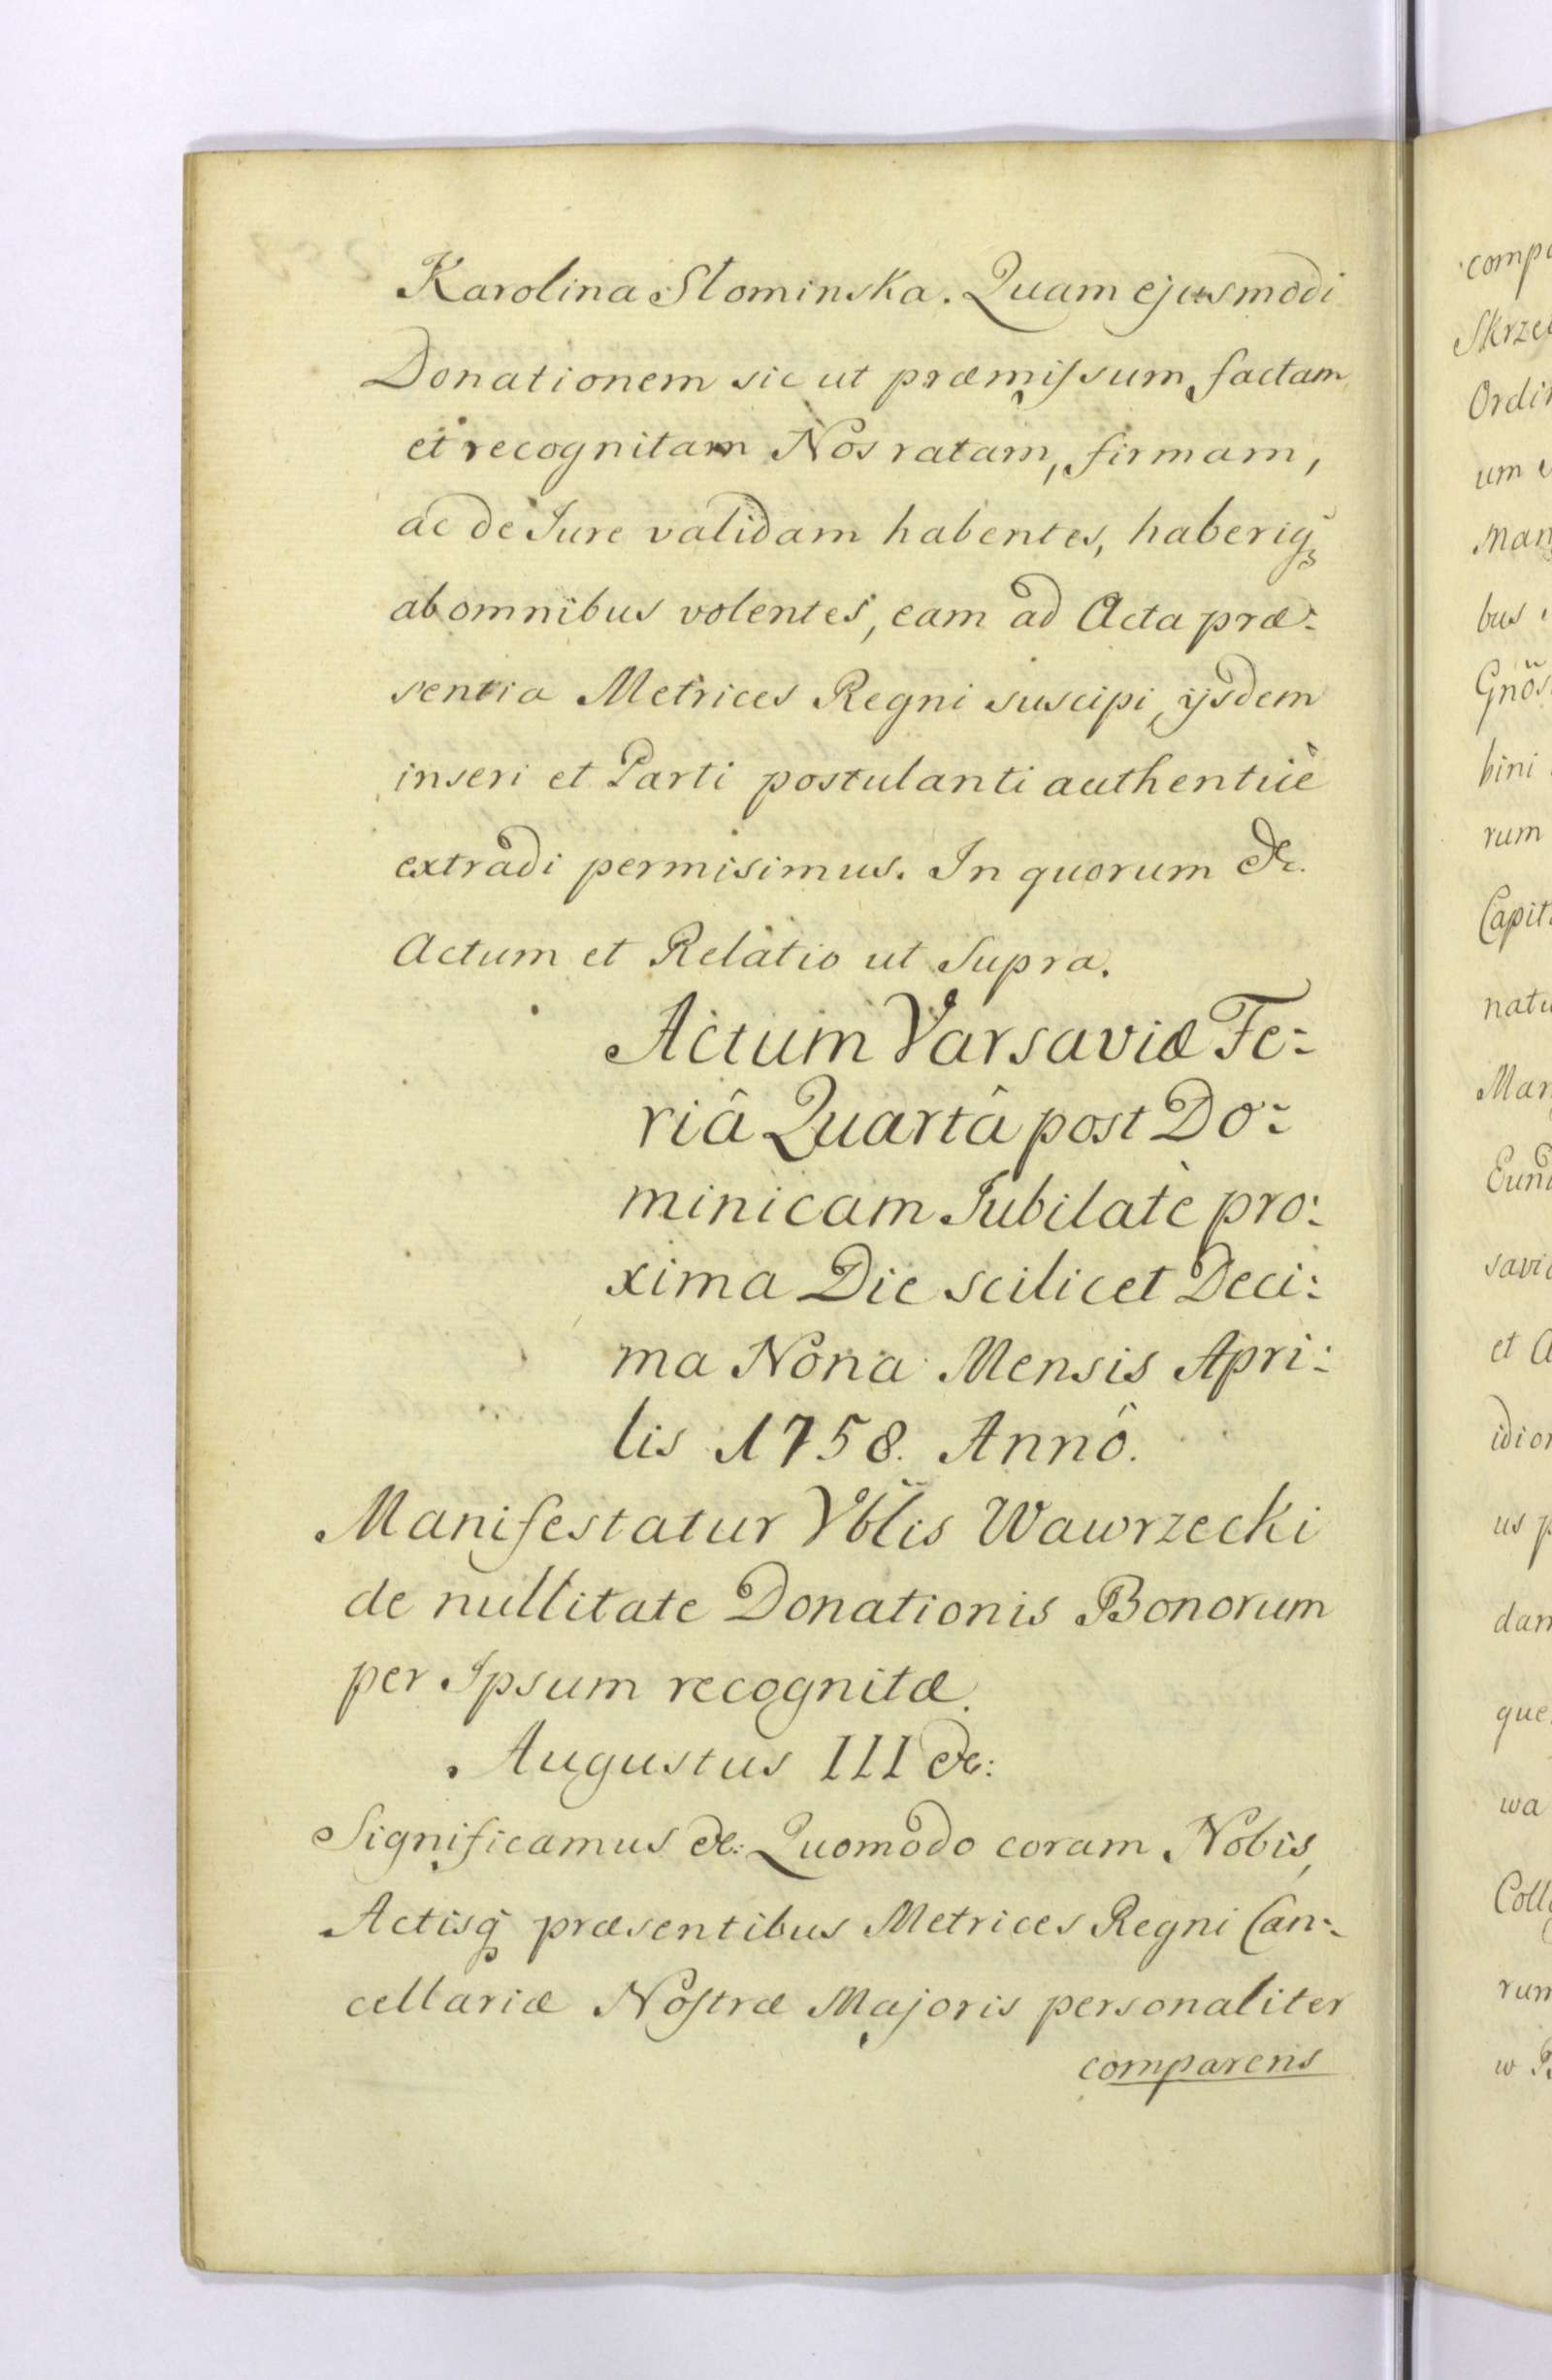 Karolina Słominska. Quam ejusmodi
Donationem sic ut præmissum, factam
et recognitam Nos ratam, firmam,
ac de Jure validam habentes, haberiq,
ab omnibus volentes, eam ad Acta præ:
sentia Metrices Regni suscipi, ijsdem
inseri et Parti postulanti authenticè
extradi permisimus. In quorum &c.
Actum et Relatio ut Supra.
Actum Varsaviæ Fe:
riâ Quartâ post Do:
minicam Jubilatè pro:
xima Die scilicet Deci:
ma Nona Mensis Apri:
lis 1758. Annô.
Manifestatur Vblis Wawrzecki
de nullitate Donationis Bonorum
per Ipsum recognitæ.
Augustus III &c:
Significamus &c: Quomodo coram Nobis,
Actisq præsentibus Metrices Regni Can:
cellariæ Nostræ Majoris personaliter
comparens
Skrze
Ordi
um
man
bus
Gnös
bini
rum
Capit
natu
Mar
savi
et A
idio
us p
dam
que
wa
Coll
rum
w